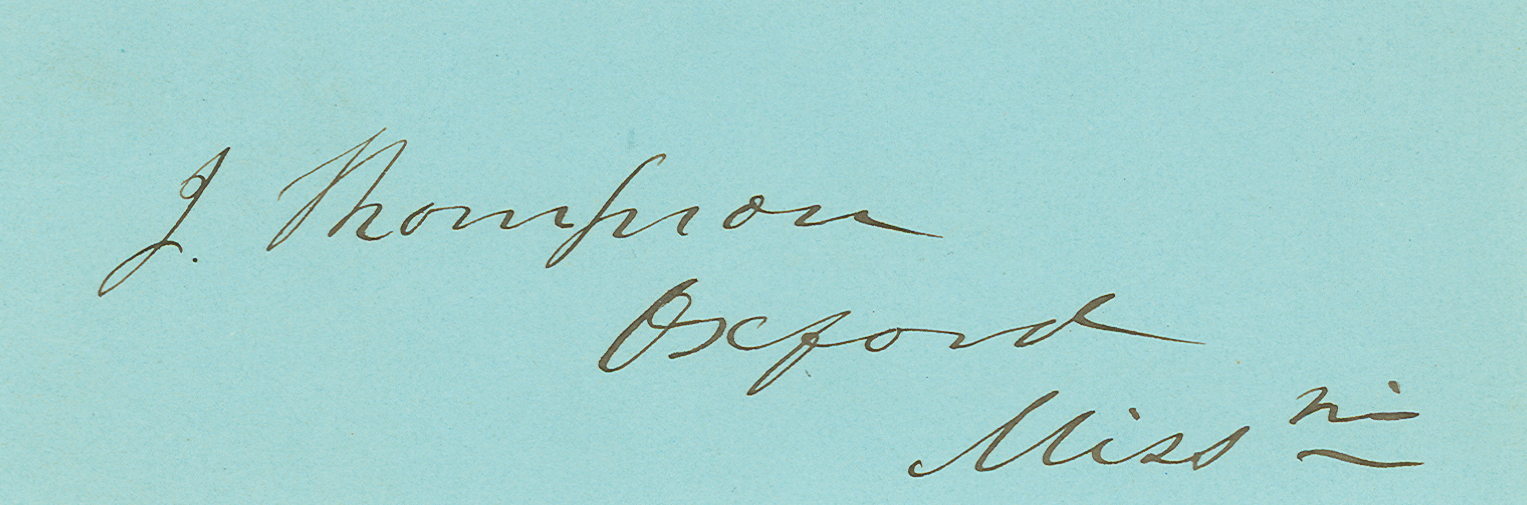 J. Thompson
Oxford
Miss pi